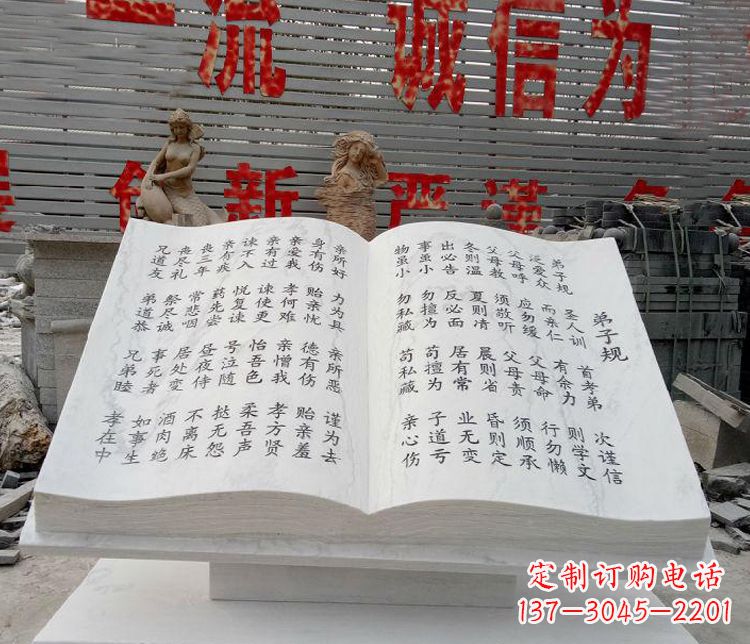 一流 诚信为
创新 严谨
弟子规
弟子规 圣人训 首考弟 次谨信
泛爱众 而亲仁 有余力 则学文
父母呼 应勿缓 父母命 行勿懒
父母教 须敬听 父母责 须顺承
冬则温 夏则凊 晨则省 昏则定
出必告 反必面 居有常 业无变
事虽小 勿擅为 苟擅为 子道亏
物虽小 勿私藏 苟私藏 亲心伤
亲所好 力为具 亲所恶 谨为去
身有伤 贻亲忧 德有伤 贻亲羞
亲爱我 孝何难 亲憎我 孝方贤
亲有过 谏使更 怡吾色 柔吾声
谏不入 悦复谏 号泣随 挞无怨
亲有疾 药先尝 昼夜侍 不离床
丧三年 常悲咽 居处变 酒肉绝
丧尽礼 祭尽诚 事死者 如事生
兄道友 弟道恭 兄弟睦 孝在中
定制订购电话
137-3045-2201